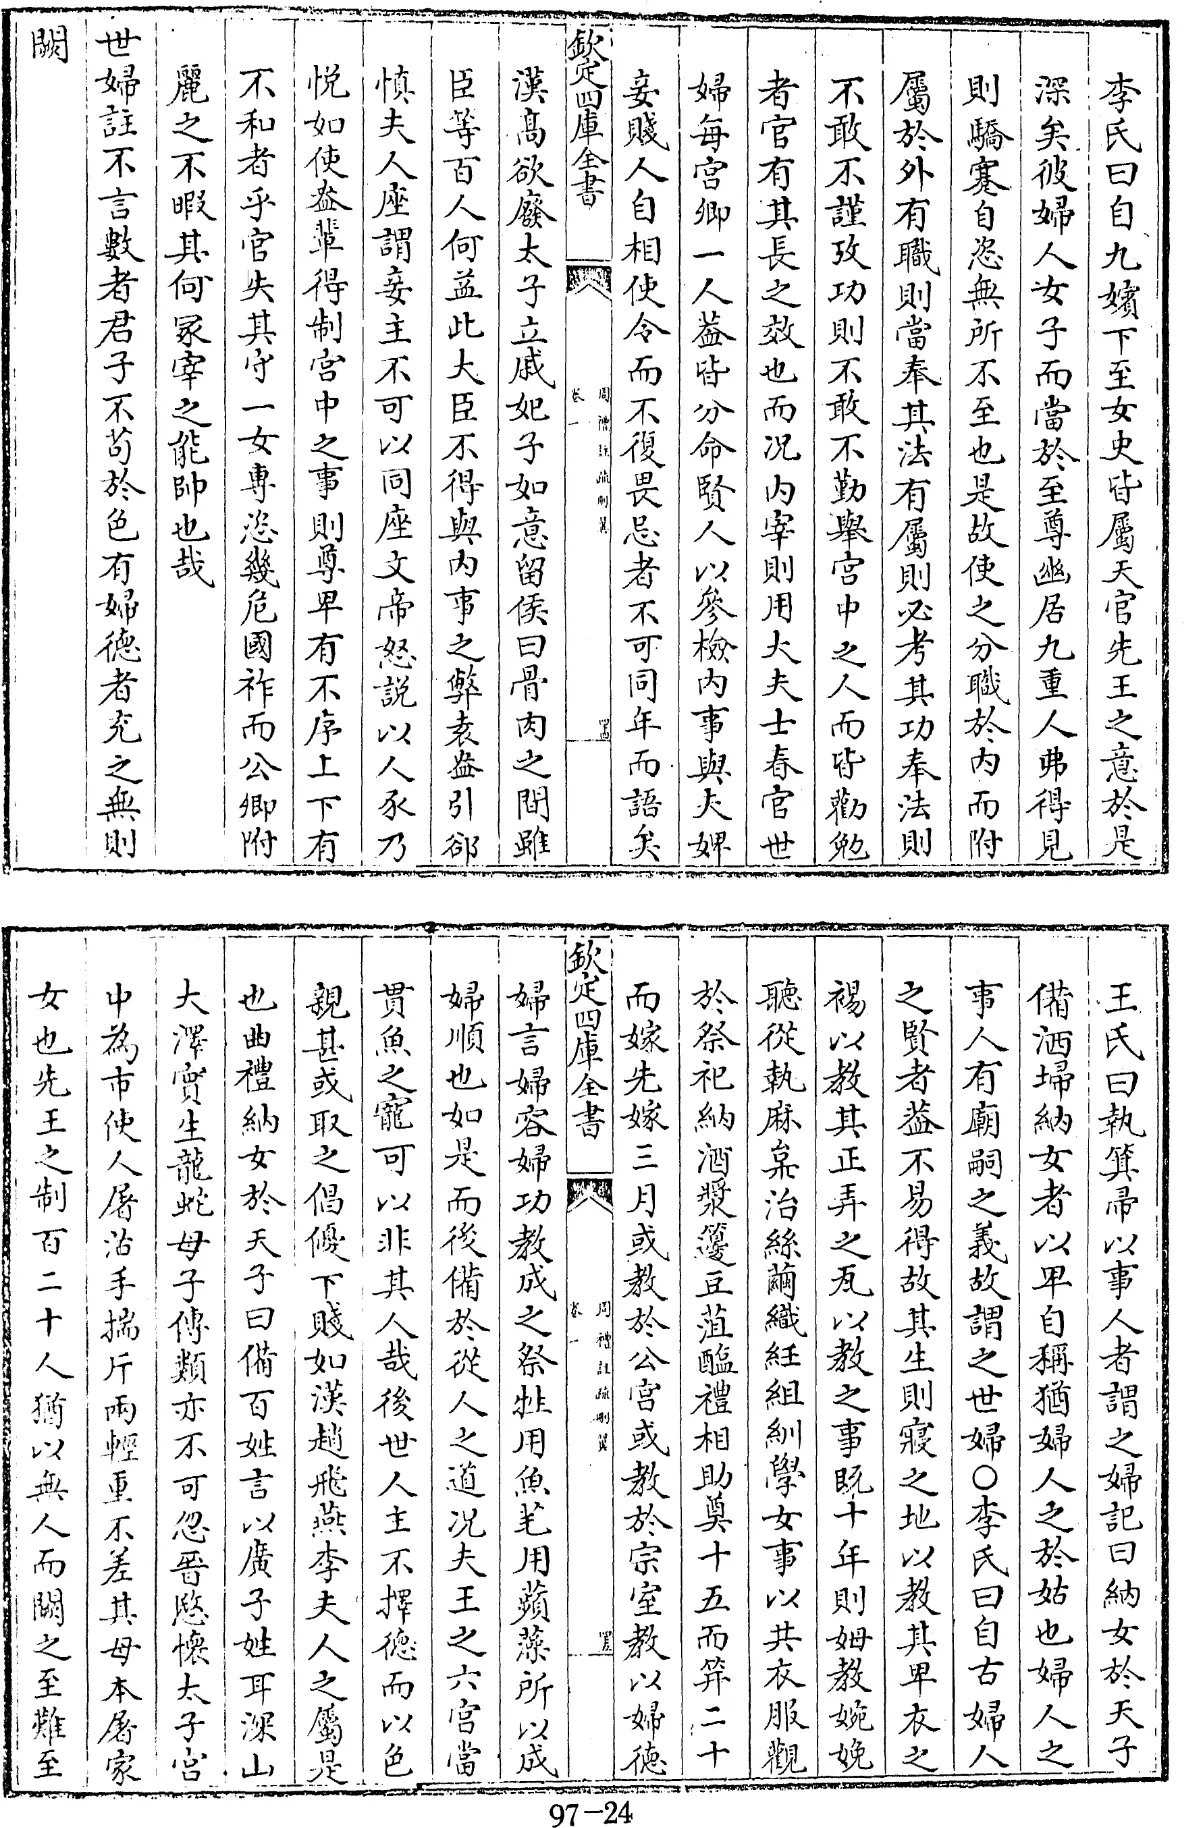 李氏曰自九嬪下至女史皆屬天官先王之意於是
深矣彼婦人女子而當於至尊幽居九重人弗得見
則驕蹇自恣無所不至也是故使之分職於内而附
屬於外有職則當奉其法有屬則必考其功奉法則
不敢不謹攷功則不敢不勤舉宫中之人而皆勸勉
者官有其長之效也而况内宰則用大夫士春官世
婦每宫卿一人葢皆分命賢人以參檢内事與夫婢
妾賤人自相使令而不復畏忌者不可同年而語矣
欽定四庫全書
周禮註疏刪翼
卷一
漢髙欲廢太子立戚妃子如意留侯曰骨肉之間雖
臣等百人何益此大臣不得與内事之弊袁盎引郤
慎夫人座謂妾主不可以同座文帝怒説以人豕乃
悦如使盎輩得制宫中之事則尊卑有不序上下有
不和者乎官失其守一女專恣幾危國祚而公卿附
麗之不暇其何冢宰之能帥也哉
世婦註不言數者君子不苟於色有婦德者充之無則
闕
王氏曰執箕帚以事人者謂之婦記曰納女於天子
備洒埽納女者以卑自稱猶婦人之於姑也婦人之
事人有廟嗣之義故謂之世婦○李氏曰自古婦人
之賢者葢不易得故其生則寢之地以教其卑衣之
裼以教其正弄之瓦以教之事既十年則姆教婉娩
聽從執麻枲治絲繭織紝組紃學女事以共衣服觀
於祭祀納酒漿籩豆菹醢禮相助奠十五而笄二十
而嫁先嫁三月或教於公宫或教於宗室教以婦德
欽定四庫全書
周禮註疏刪翼
卷一
婦言婦容婦功教成之祭牲用魚芼用蘋藻所以成
婦順也如是而後備於從人之道况夫王之六宫當
貫魚之寵可以非其人哉後世人主不擇德而以色
親甚或取之倡優下賤如漢趙飛燕李夫人之屬是
也曲禮納女於天子曰備百姓言以廣子姓耳深山
大澤實生龍蛇母子傳類亦不可忽晉愍懷太子宫
中為市使人屠沽手揣斤兩輕重不差其母本屠家
女也先王之制百二十人猶以無人而闕之至難至
97-24